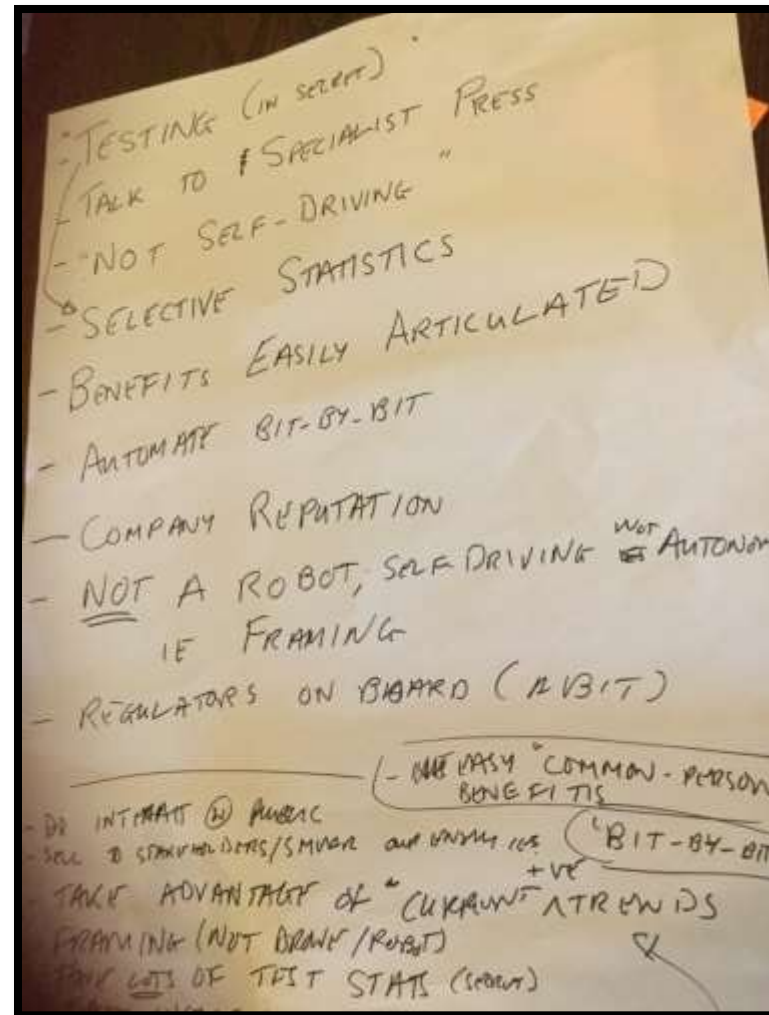 - TESTING (IN SECRET)
- TALK TO SPECIALIST PRESS
- "NOT SELF-DRIVING"
- SELECTIVE STATISTICS
- BENEFITS EASILY ARTICULATED
- AUTOMATE BIT-BY-BIT
- COMPANY REPUTATION
- NOT A ROBOT, SELF DRIVING NOT AUTONOM
IE FRAMING
- REGULATORS ON BOARD (A BIT)
- EASY "COMMON-PERSON
BENEFITS
- DO INTERACT W PUBLIC
- SELL TO STAKEHOLDERS/
"BIT-BY-BIT
+VE
- TAKE ADVANTAGE OF "CURRENT" ^ TRENDS
- FRAMING (NOT DRONE/ROBOT)
LOTS OF TEST STATS (SECRET)